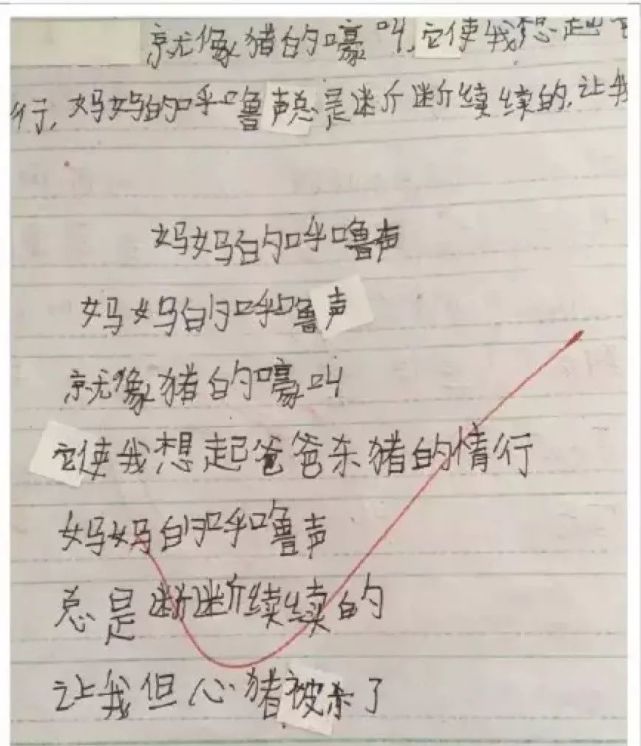 就像猪的嚎叫,它使我想起
行,妈妈的呼噜声总是断断续续的,让我
妈妈的呼噜声
妈妈的呼噜声
就像猪的嚎叫
它使我想起爸爸杀猪的情行
妈妈的呼噜声
总是断断续续的
让我但心猪被杀了